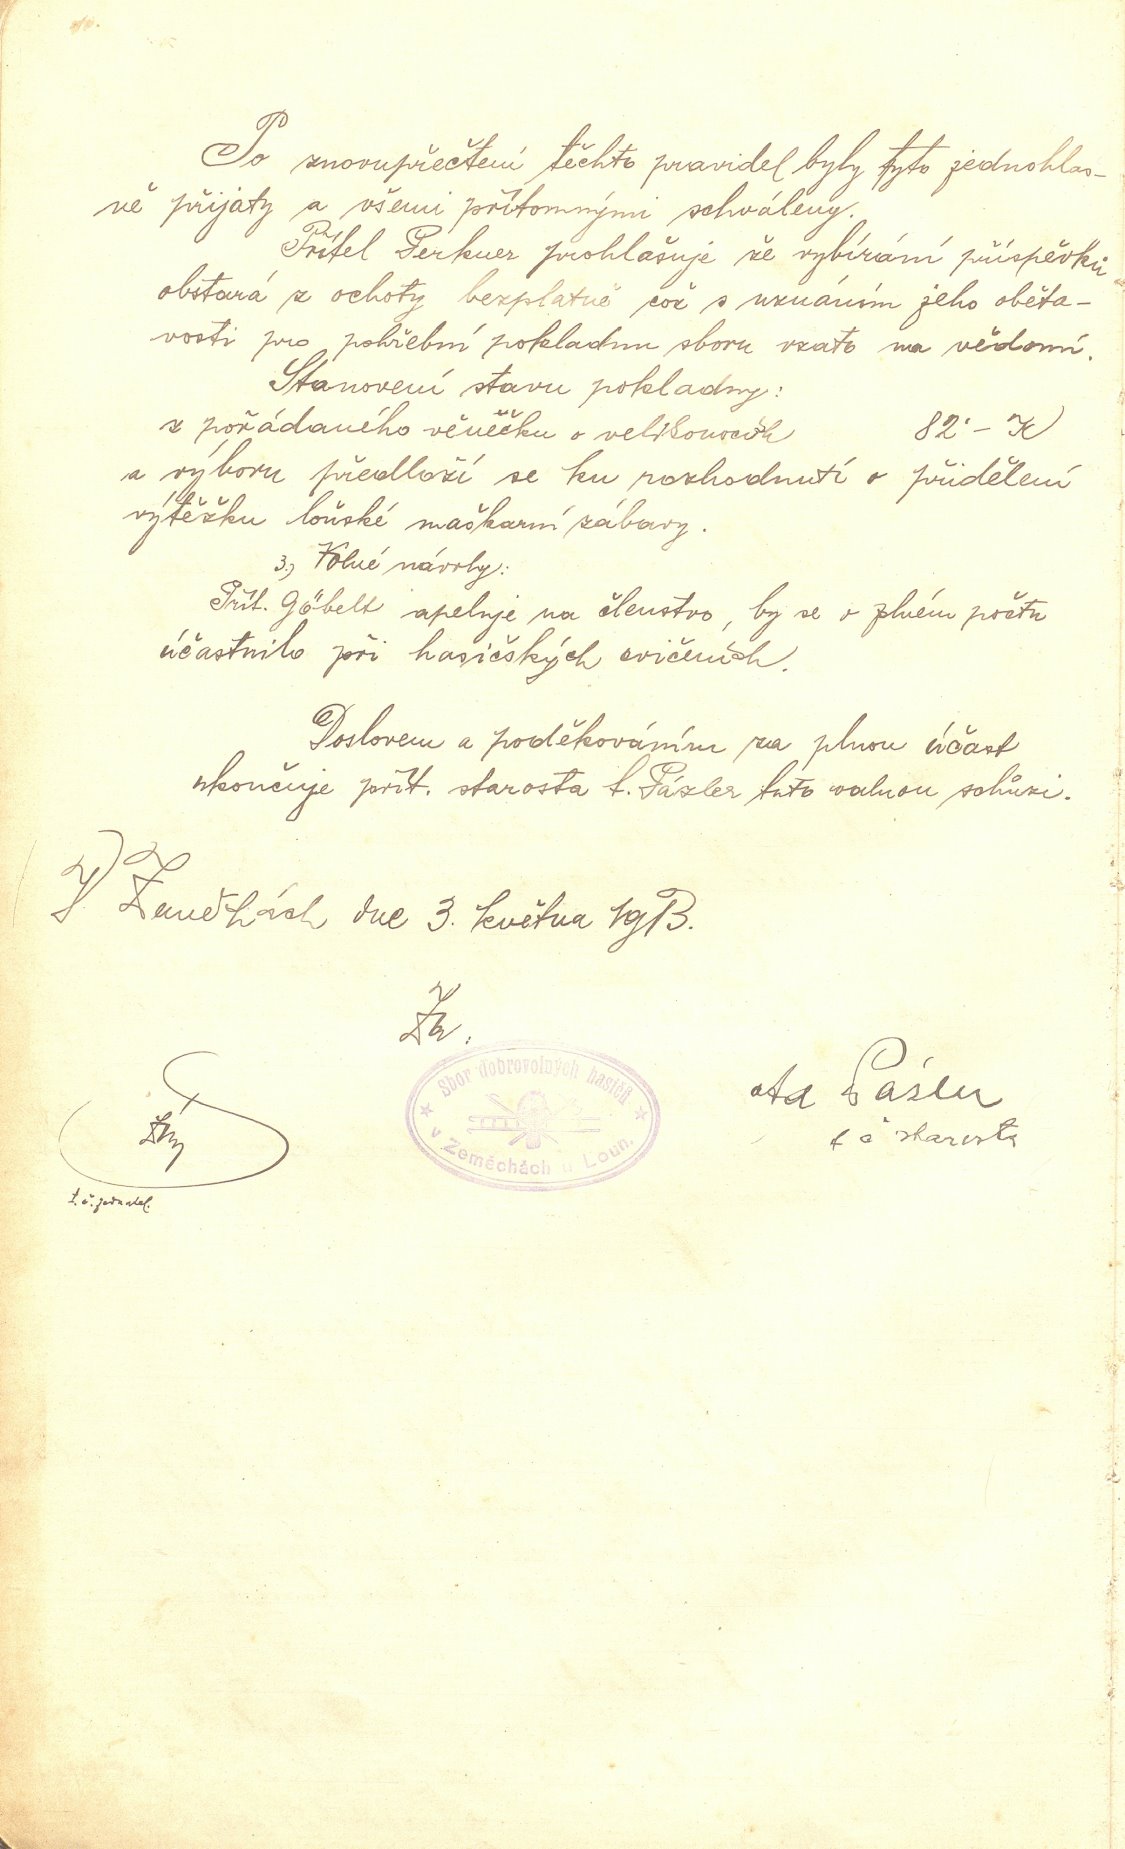 Po znovupřečtení těchto pravidel byly tyto jednohlas-
ně přijaty a všemi přítomnými schváleny.
Přítel Perkner prohlašuje že vybírání příspěvků
obstará z ochoty bezplatně což s uznáním jeho oběta-
vosti pro pohřební pokladnu sboru vzato na vědomí.
Stanovení stavu pokladny:
z pořádaného věnečku o velikonocích 82·– K
a výboru předloží se ku rozhodnutí o přidělení
výtěžku loňské maškarní zábavy.
3.) Volné návrhy:
Přít. Göbelt apeluje na členstvo, by se v plném počtu
účastnilo při hasičských cvičeních.
Doslovem a poděkováním za plnou účast
ukončuje přít. starosta t. Pázler tuto valnou schůzi.
V Zeměchách dne 3. května 1913.
Za:
Sbor dobrovolných hasičů
v Zeměchách u Loun.
Ad Pázler
t č starosta
t. č. jednatel.